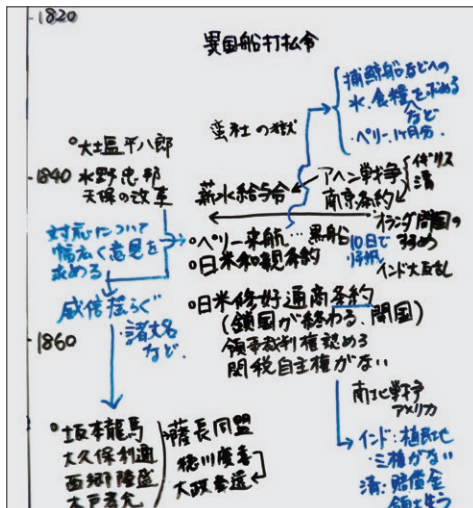 1820
異国船打払令
捕鯨船などへの
水、食糧を求める
など
ペリー、1ヶ月分
蛮社の獄
大塩平八郎
1840
水野忠邦
天保の改革
薪水給与令
アヘン戦争
イギリス
清
南京条約
オランダ開国の
すすめ
対応について
幅広く意見を
求める
ペリー来航…黒船
10日で
日米和親条約
インド大反乱
威信揺らぐ
諸大名
など
日米修好通商条約
(鎖国が終わる、開国)
領事裁判権認める
関税自主権がない
1860
南北戦争
アメリカ
坂本龍馬
大久保利通
西郷隆盛
木戸孝允
薩長同盟
徳川慶喜
大政奉還
インド:植民地
・主権がない
清:賠償金
領土失う